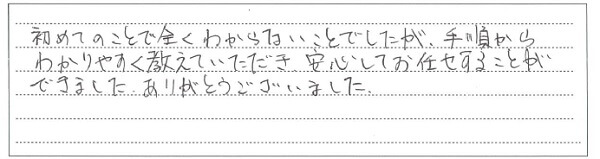 初めてのことで全くわからないことでしたが、手順から
わかりやすく教えていただき 安心してお任せすることが
できました。ありがとうございました。